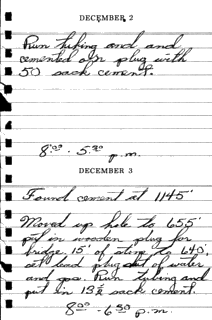 DECEMBER 2
Run tubing and and
cemented off plug with
50 sack cement.
8:00 - 5:30 p.m.
DECEMBER 3
Found cement at 1145'
Moved up hole to 655'
put in wooden plug for
bridge, 15' of stone to 640',
set lead plug off water
and gas. Run tubing and
put in 13½ sack cement.
8:00 - 6:30 p.m.